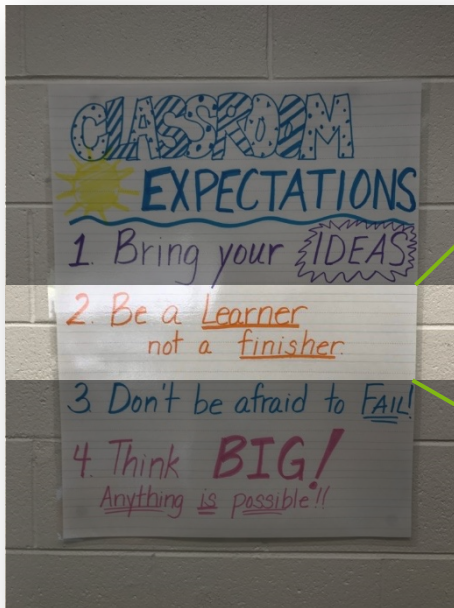 CLASSROOM
EXPECTATIONS
1. Bring your IDEAS
2. Be a Learner
not a finisher.
3. Don't be afraid to FAIL!
4. Think BIG!
Anything is possible!!